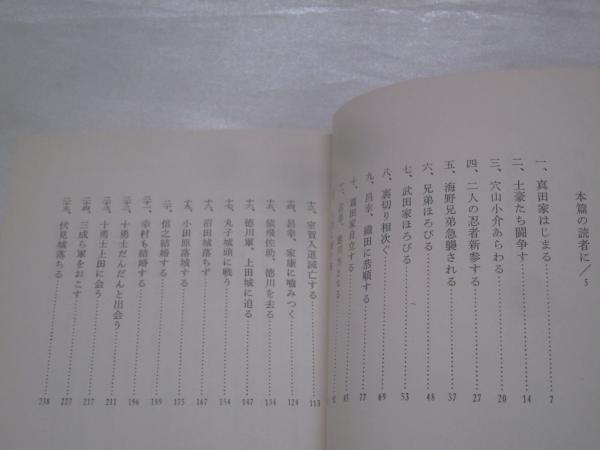 本篇の読者に／5
一、真田家はじまる……7
二、土豪たち闘争す……14
三、穴山小介あらわる……20
四、二人の忍者新参する……27
五、海野兄弟急襲される……37
六、兄弟ほろびる……48
七、武田家ほろびる……53
八、裏切り相次ぐ……69
九、昌幸、織田に恭順する……77
十、真田家自立する……85
92
室賀入道誅亡する……113
昌幸、家康に噛みつく……124
猿飛佐助、徳川を去る……134
徳川軍、上田城に迫る……147
丸子城頭に戦う……154
沼田城落ちず……167
小田原落城する……175
信之結婚する……189
幸村も結婚する……196
十勇士だんだんと出会う……211
十勇士上田に会う……217
三成ら軍をおこす……227
伏見城落ちる……238